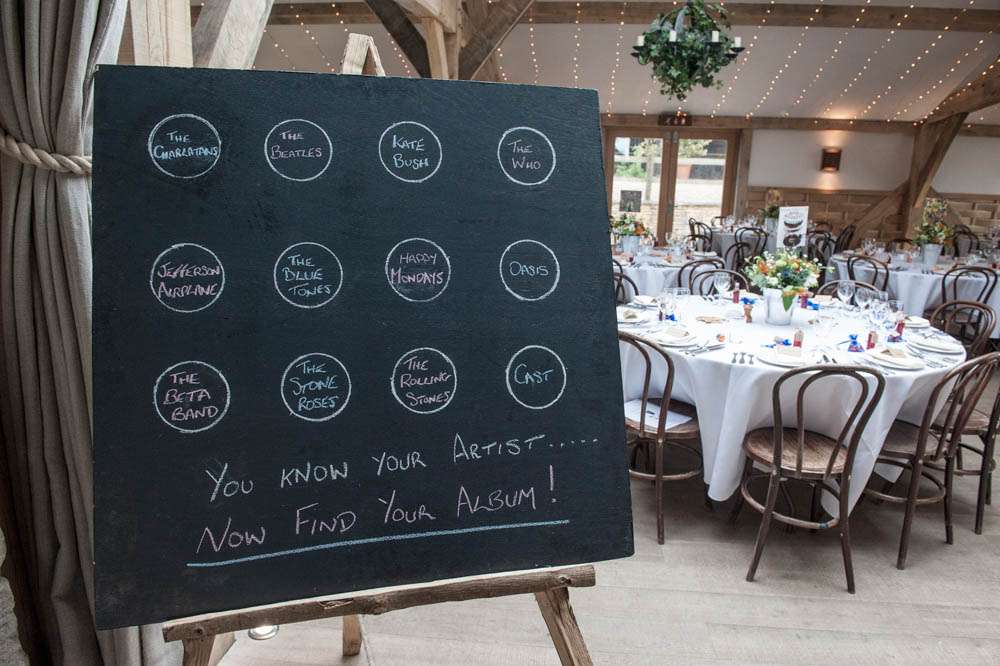 The
Charlatans
The
Beatles
Kate
Bush
The
Who
Jefferson
Airplane
The
Blue
Tones
Happy
Mondays
Oasis
The
Beta
Band
The
Stone
Roses
The
Rolling
Stones
Cast
You know your Artist.....
Now Find Your Album!